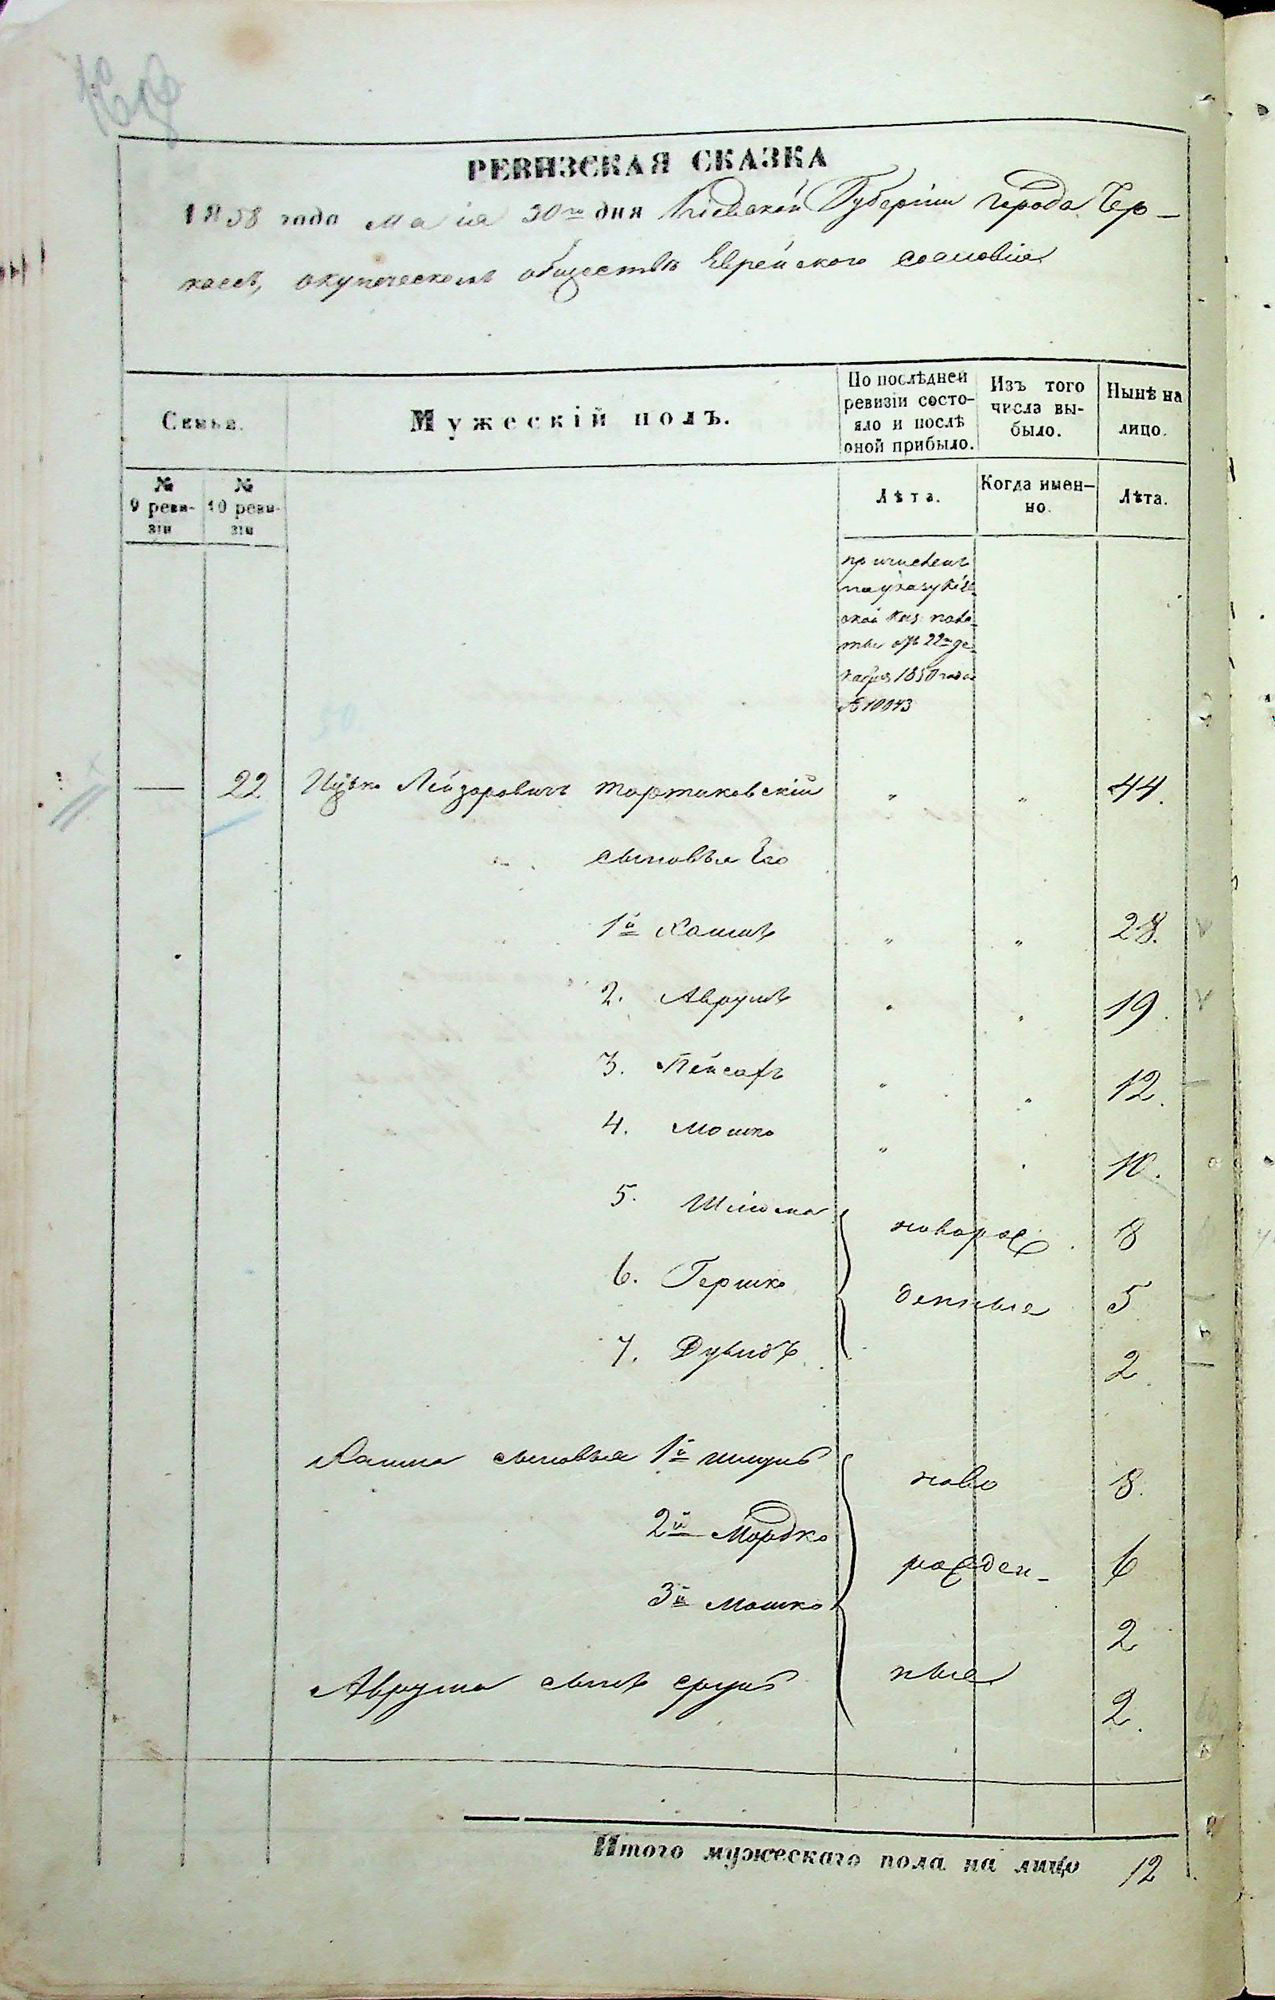 РЕВИЗСКАЯ СКАЗКА
1858 года маія 30го дня Кіевской Губерніи города Чер-
касъ, окупеческомъ обществѣ Еврейского сословія
Семьи.
Мужескій полъ.
По послѣдней
ревизіи состо-
яло и послѣ
оной прибыло.
Изъ того
числа вы-
было.
Нынѣ на
лицо.
№
9 реви-
зіи
№
10 реви-
зіи
Лѣта.
Когда имен-
но.
Лѣта.
причисленъ
по указу Кіев-
ской Каз. пала-
ты отъ 22го де-
кабря 1850 года
№ 10943
— 22 Ицько Лейзоровичъ Тартаковскій " " 44.
сыновья Его
1й Хаимъ " " 28.
2. Аврумъ " " 19.
3. Пейсахъ " " 12.
4. Мошко " " 10.
5. Шлиома новорож 8
6. Гершко денные 5
7. Дувидъ 2
Хаима сыновья 1й 8.
ново
2й Мордко рожден- 6
3й Мошко 2
Аврума сынъ Сруль ные 2.
Итого мужескаго пола на лицо 12